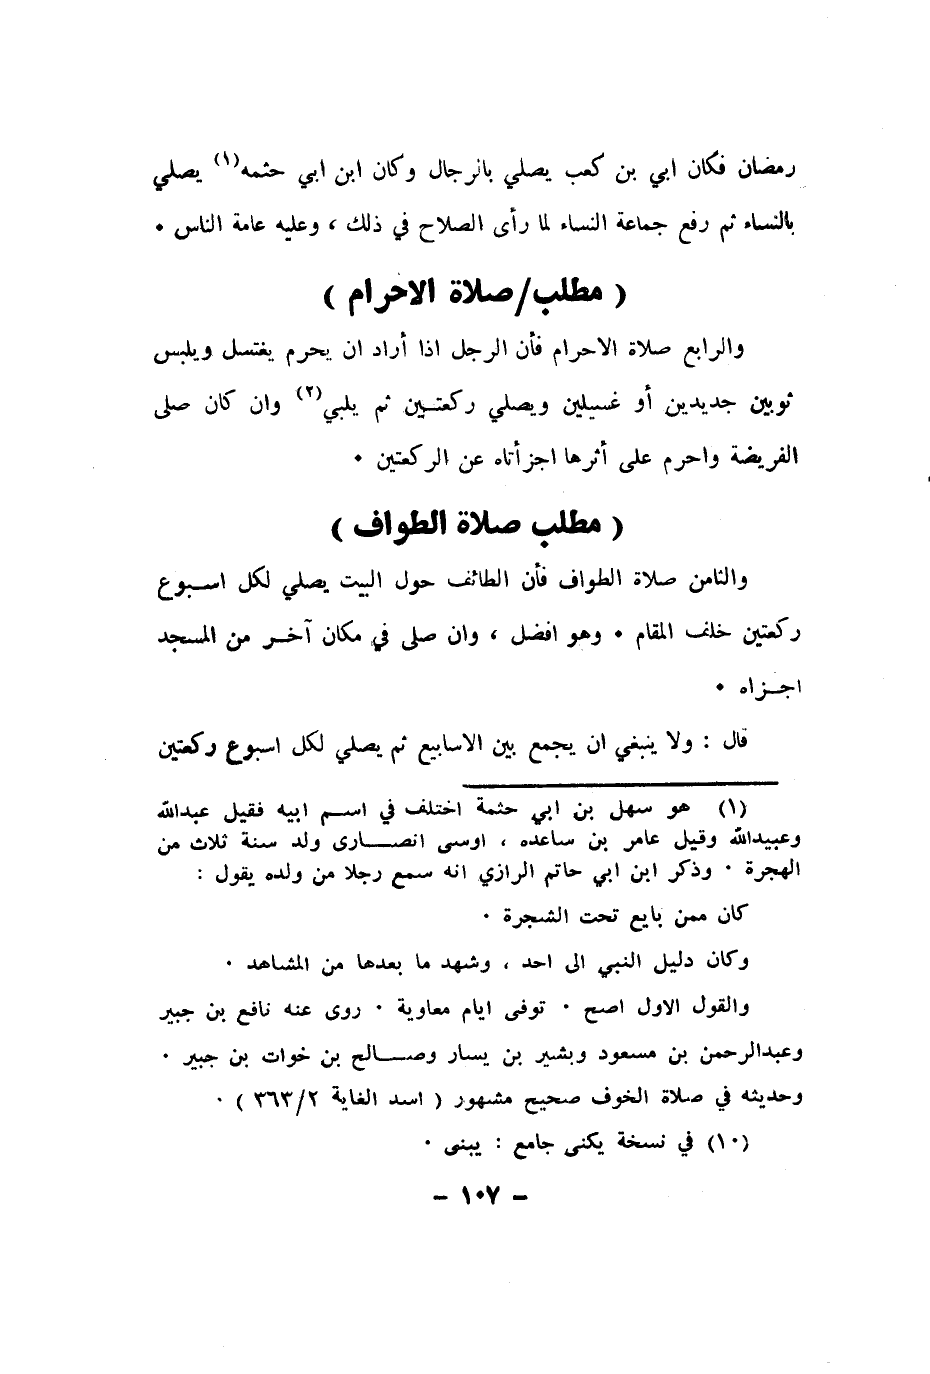 رمضان فكان ابي بن كعب يصلي بالرجال وكان ابن ابي حثمه(١) يصلي
بالنساء ثم رفع جماعة النساء لما رأى الصلاح في ذلك ، وعليه عامة الناس ٠
( مطلب/صلاة الاحرام )
والرابع صلاة الاحرام فأن الرجل اذا أراد ان يحرم يغتسل ويلبس
ثوبين جديدين أو غسيلين ويصلي ركعتـين ثم يلبي(٢) وان كان صلى
الفريضة واحرم على أثرها اجزأتاه عن الركعتين ٠
( مطلب صلاة الطواف )
والثامن صلاة الطواف فأن الطائف حول البيت يصلي لكل اسـبوع
ركعتين خلف المقام ٠ وهو افضل ، وان صلى في مكان آخـر من المسجد
اجـزاه ٠
قال : ولا ينبغي ان يجمع بين الاسابيع ثم يصلي لكل اسبوع ركعتين
(١) هو سهل بن ابي حثمة اختلف في اسـم ابيه فقيل عبدالله
وعبيدالله وقيل عامر بن ساعده ، اوسى انصـارى ولد سنة ثلاث من
الهجرة ٠ وذكر ابن ابي حاتم الرازي انه سمع رجلا من ولده يقول :
كان ممن بايع تحت الشجرة ٠
وكان دليل النبي الى احد ، وشهد ما بعدها من المشاهد ٠
والقول الاول اصح ٠ توفى ايام معاوية ٠ روى عنه نافع بن جبير
وعبدالرحمن بن مسعود وبشير بن يسار وصـالح بن خوات بن جبير ٠
وحديثه في صلاة الخوف صحيح مشهور ( اسد الغاية ٣٦٣/٢ ) ٠
(١٠) في نسخة يكنى جامع : يبنى ٠
- ١٠٧ -